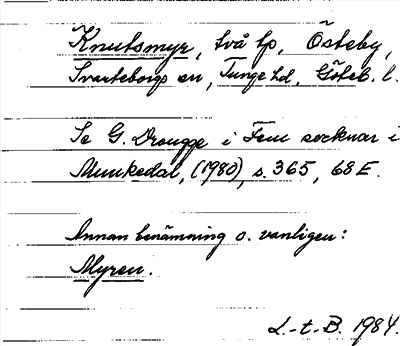 Knutsmyr, två lp, Östeby,
Svarteborgs sn, Tunge hd, Göteb. l.
Se G. Drougge i Fem socknar i
Munkedal, (1980), s. 365, 68 E.
Annan benämning o. vanligen:
Myren.
L.-t.-B. 1984.